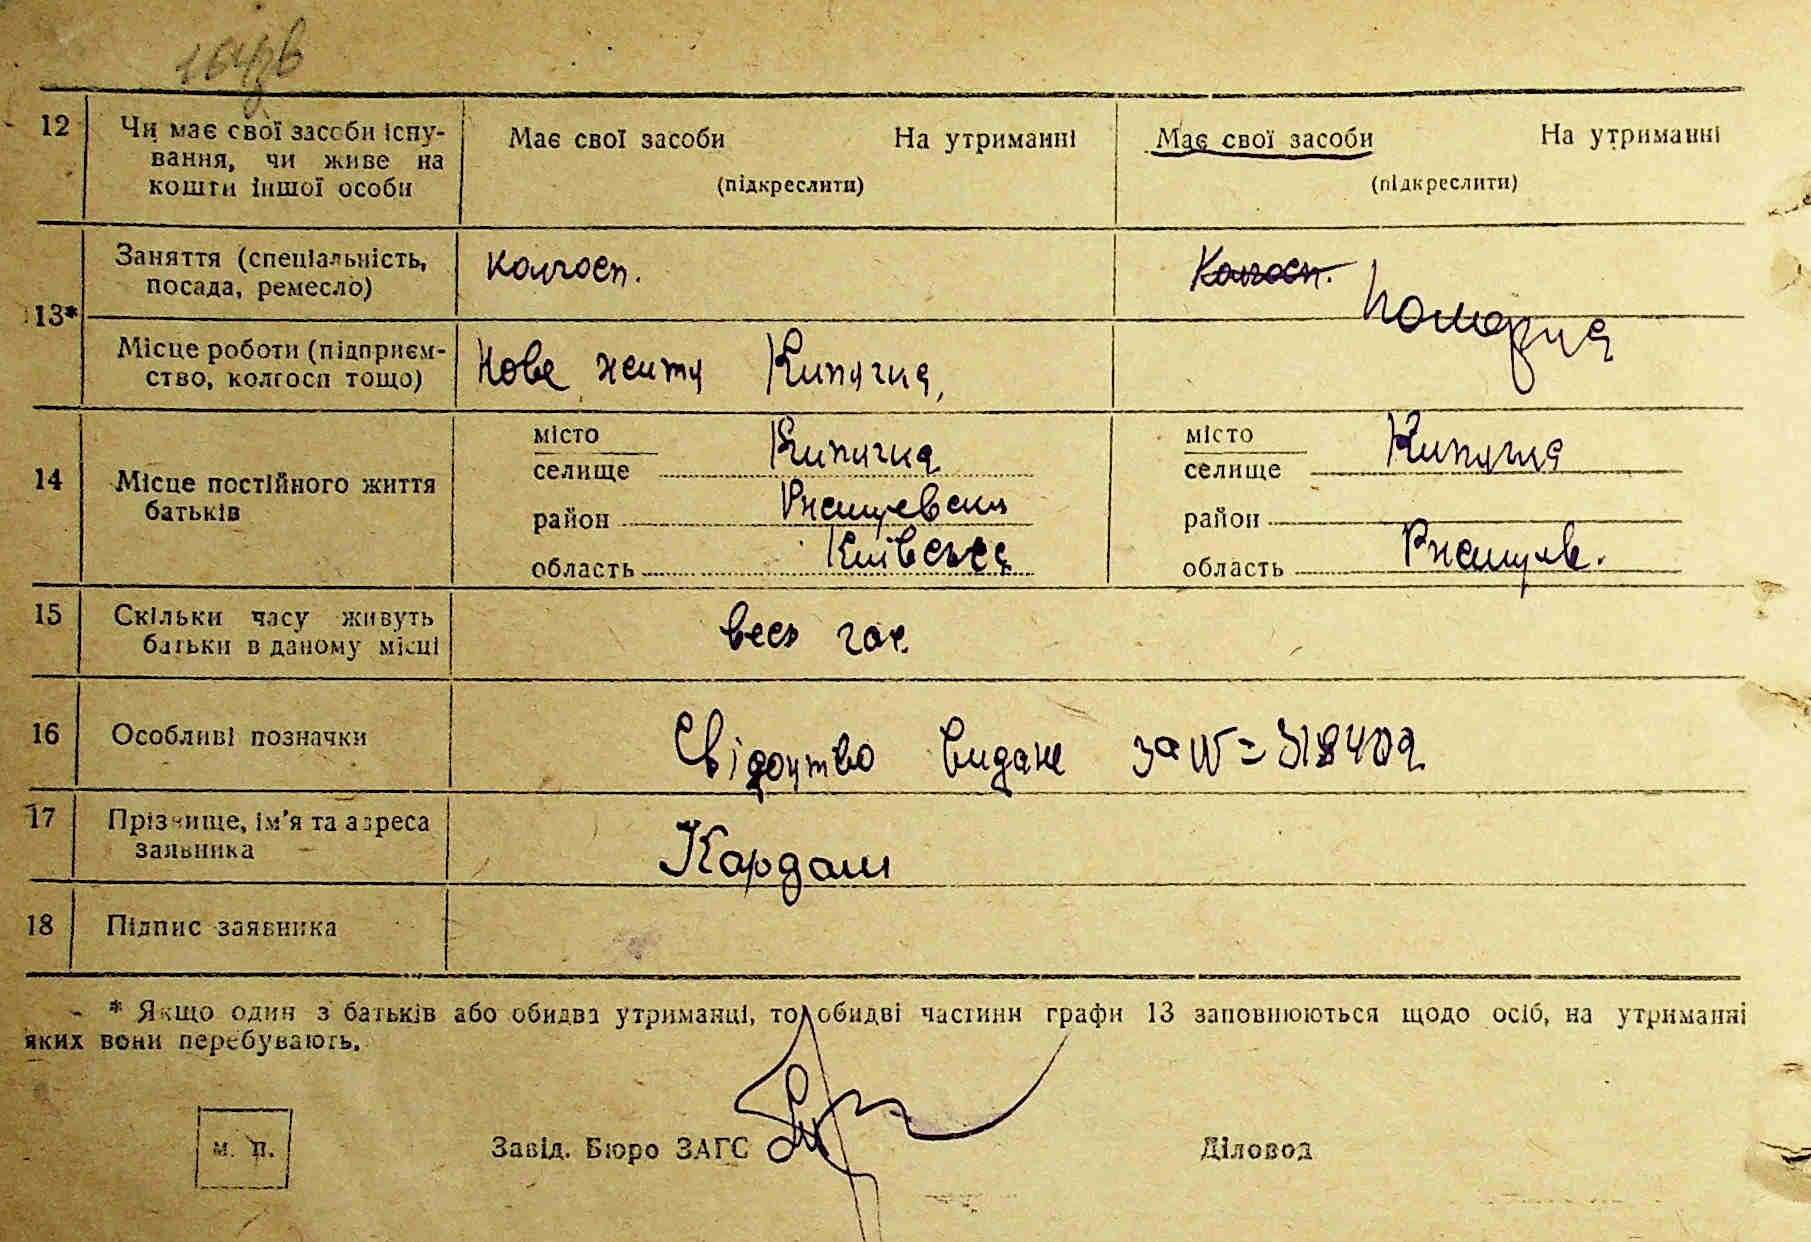 12 Чи має свої засоби існу-
вання, чи живе на
кошти іншої особи
Має свої засоби На утриманні
(підкреслити)
Має свої засоби На утриманні
(підкреслити)
13*
Заняття (спеціальність,
посада, ремесло)
колгосп.
Колгосп.
Місце роботи (підприєм-
ство, колгосп тощо)
Нове життя Кипячка,
14 Місце постійного життя
батьків
місто
селище Кипячка
район Ржищевськ
область Київська
місто
селище Кипячка
район
область Ржищів.
15 Скільки часу живуть
батьки в даному місці
весь час.
16 Особливі позначки
Свідоцтво видане за №
17 Прізвище, ім'я та адреса
заявника
Кардаш
18 Підпис заявника
* Якщо один з батьків або обидва утриманці, то обидві частини графи 13 заповнюються щодо осіб, на утриманні
яких вони перебувають.
м. п.
Завід. Бюро ЗАГС
Діловод